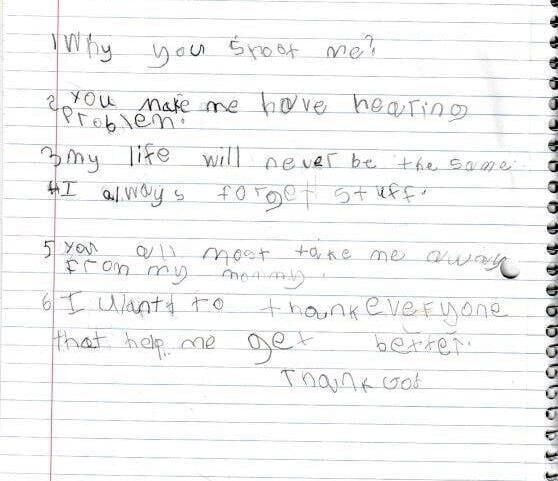 1 Why you shoot me?
2 you make me have hearing
Problem.
3 my life will never be the same
4 I always forget stuff.
5 you all most take me away
from my mommy.
6 I Want to thank everyone
that help me get better.
Thank God